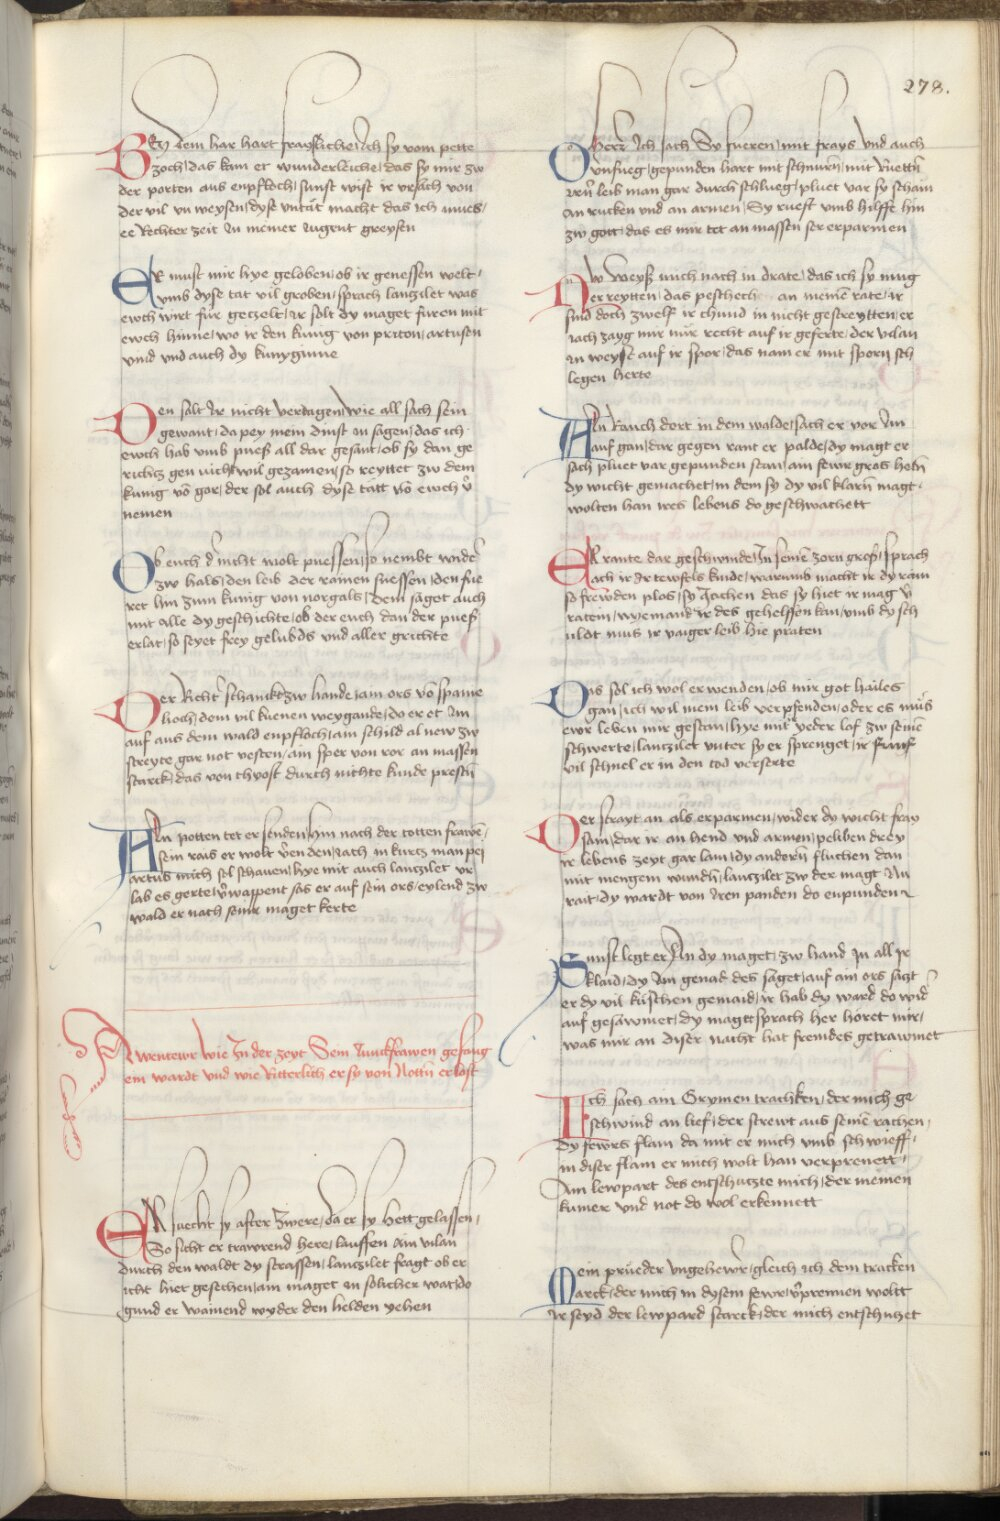 278.
Bey dem har hart frayslicheich sy vom pette
zoch / das kam er wunderleiche / das sy mir zw
der porten aus enpfloch / sunst wist ir ursach von
der vil un weysen / dyse untat macht das ich mues /
ee Rechter zeit in meiner Jugent greysen
Er must mir hye geloben / ob ir genessen welt /
umb dyse tat vil groben / sprach lantzilet was
ewch wirt für getzelt / ir solt dy maget füren mit
ewch hinne / wo ir den kunig von priton / artusen
vind und auch dy kunyginne
Den solt Ir nicht verdagen / wie all sach sein
gewant / da pey mein dinst an sagen / das ich
ewch hab umb pues all dar gesant / ob sy dan ge
richtz gen nicht wil gezamen / so reyttet zw dem
kunig vō gor / der sol auch dyse tatt vō ewch v̄
nemen
Ob euch d' nicht wolt puessen / so nembt wider
zw hals / den leib der rainen suessen / den fue
ret hin zum kunig von norgals / dem saget auch
mit alle dy geschichte / ob der euch dan der pues
erlat / so seyet frey gelubds und aller grichte
Der Richt schanckt zw hande / am ors vō spanie
hoch / dem vil kuenen weygande / do er et Im
auf aus dem wald enpfloch / am schild al new zw
streyte gar not vesten / ain sper von ror an massen
starck / das von thyost durch nichte kunde prestn̄
Aln potten tet er senden / hin nach der totten frawē /
sein rais er wolt v̄enden / iach in kurtz man pej
artus mich sol schauen / hye mit auch lantzilet vr
lab es gerte / v̄wappent sas er auf sein ors / eylend zw
wald er nach seinr maget kerte
Awentewr wie In der zeyt Sein Junckfrawen gefang
ein wardt und wie Ritterlich er sy von Nottn̄ erlost
Er suecht sy after zwere / da er sy hett gelassen /
So sicht er trawrend here / lauffen ain vilan
durch den waldt dy strassen / lantzilet fragt ob er
icht hiet gesechen / ain maget in solicher wat / do
gund er wainend wyder den helden yehen
O herr Ich sach Sy fueren / mit frays Und auch
unfueg / gepunden hart mit schnuern̄ / mit Ruettn̄
Irn̄ leib man gar durch schlueg / pluet var sy schain
an rucken und an armen / Sy ruest umb hilffe hin
zw gott / das es mir tet an massen ser erparmen
Nw weysz mich nach in drate / das ich sy mug
erreytten / das peschech an meinē rate / ir
sind doch zwelf ir chund in nicht gestreytten / er
iach zayg mir nür recht auf ir geferte / der vilan
in weyst auf ir spor / das nam er mit sporn sch
legen herte
Aln rauch dort in dem walde / sach er vor Im
auf gan / dar gegen rant er palde / dy magt er
sach pluet var gepunden stan / ain fewr gros hetn̄
dy wicht gemachet / in dem sy dy vil klarn̄ magt /
wolten han ires lebens do geschwachett
Er rante dar geschwinde / In seinē zorn gros / sprach
ach ir Ir tewfels kinde / warumb macht ir dy rain
so frewden plos / sy Jachen das sy hiet ir mag v̄
raten / nyemand ir des gehelffen kan / umb dy sch
uldt mus ir vaiger leib hie praten
Das sol ich wol erwenden / ob mir got hailes
gan / ich wil mein leib verpfenden / oder es mues
ewr leben mir gestan / hye mit yeder lof zw seinē
schwerte / lantzilet unter sy er sprenget / ir funf
vil schnel er in den tod verserte
Der strayt an als erparmen / wider dy wicht fray
sam / dar ir an hend und armen / peliben drey
ir lebens zeyt gar lam / dy andern̄ fluchen dan
mit mengem wundn̄ / lantzilet zw der magt In
rait / dy wardt von Iren panden do enpunden
Sunst legt er In dy maget / zw hand In all Ir
klaid / dy Im genad des saget / auf ain ors satzt
er dy vil küschen gemaid / ir hab dy ward do wid'
auf gesawmet / dy magtt sprach her horet mir /
was mir an diser nacht hat fremdes getrawmet
Ich sach ain Grymen tracken / der mich ge
schwind an lief / der strewt aus seinē rachen /
dy fewrs flam da mit er mich umb schwieff /
in diser flam er mich wolt han verprenett /
Ain lewpart des entschutzte mich / der meinen
kumer und not do wol erkennett
Mein prueder ungehewr / gleich ich dem tracken
starck / der mich in dysem fewr / v̄prennen woltt
Ir seyd der lewpard starck / der mich entschutzet